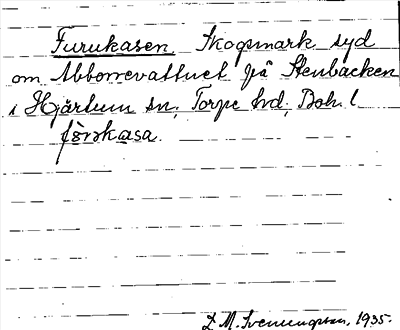 Furukasen. Skogsmark syd
om Abborrevattnet på Stenbacken
i Hjärtum sn, Torpe hd, Boh. l
försk​asa.
M. Svenungsson, 1935.